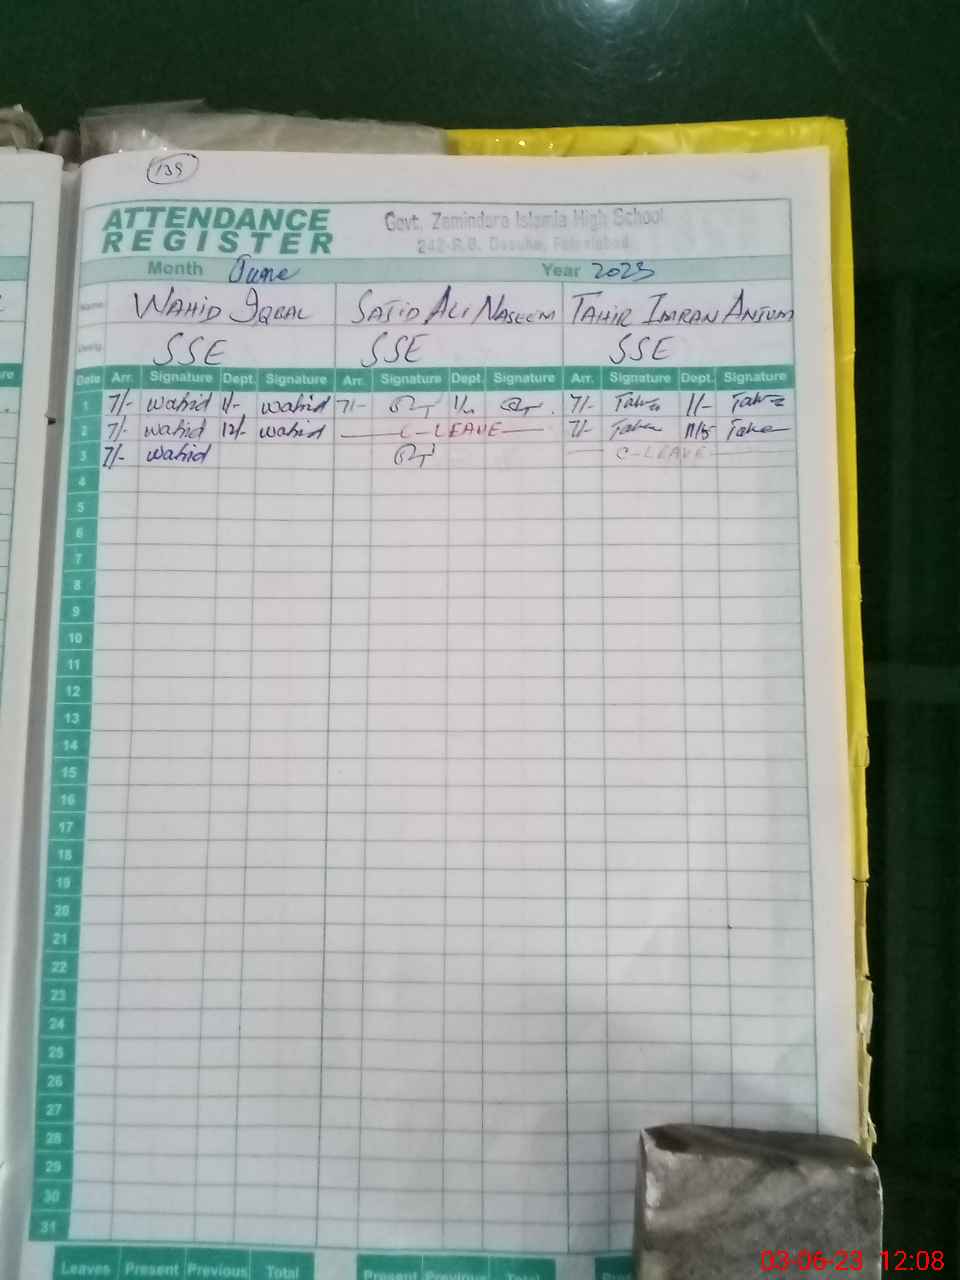 139
ATTENDANCE REGISTER
Govt. Zamindara Islamia High School
242-R.B. Dasuha, Faisalabad
Month June Year 2023
Name WAHID IQBAL SAJID ALI NASEEM TAHIR IMRAN ANJUM
Desig. SSE SSE SSE
Date Arr. Signature Dept. Signature Arr. Signature Dept. Signature Arr. Signature Dept. Signature
1 7/- wahid 1/- wahid 7/- 7/- 1/-
2 7/- wahid 12/- wahid C-LEAVE 7/- 11/15
3 7/- wahid C-LEAVE
4
5
6
7
8
9
10
11
12
13
14
15
16
17
18
19
20
21
22
23
24
25
26
27
28
29
30
31
Leaves Present Previous Total Present Previous Total
03-06-23 12:08